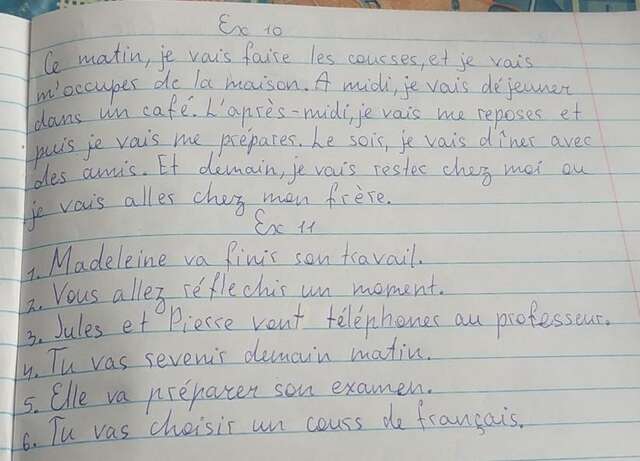 Ex 10
Ce matin, je vais faire les courses, et je vais
m'occuper de la maison. A midi, je vais déjeuner
dans un café. L'après-midi, je vais me reposer et
puis je vais me préparer. Le soir, je vais dîner avec
des amis. Et demain, je vais rester chez moi ou
je vais aller chez mon frère.
Ex 11
1. Madeleine va finir son travail.
2. Vous allez réflechir un moment.
3. Jules et Pierre vont téléphoner au professeur.
4. Tu vas revenir demain matin.
5. Elle va préparer son examen.
6. Tu vas choisir un cours de français.